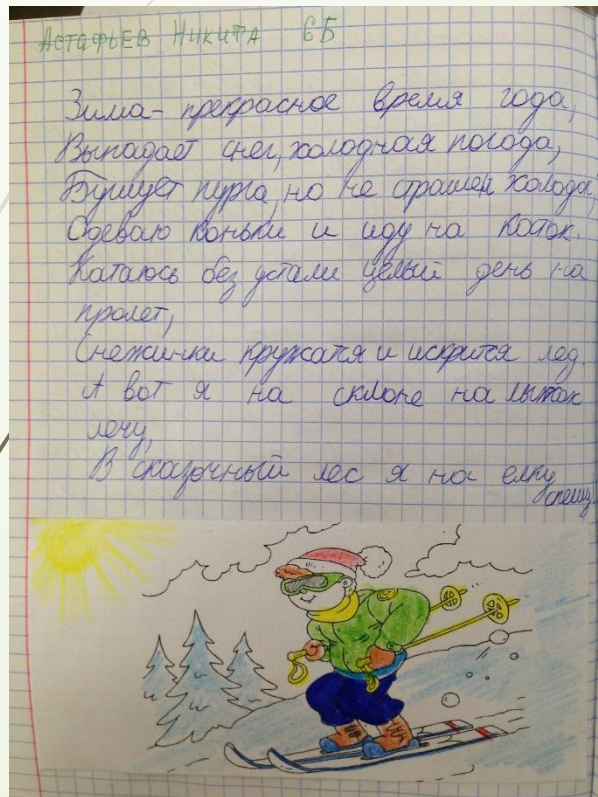 Астафьев Никита 6Б
Зима- прекрасное время года,
Выпадает снег, холодная погода,
Бушует пурга, но не страшен холода,
Одеваю коньки и иду на каток.
Катаюсь без устали целый день на
пролет,
Снежинки кружатся и искрится лед.
А вот я на склоне на лыжах
лечу,
В сказочный лес я на елку
спешу.